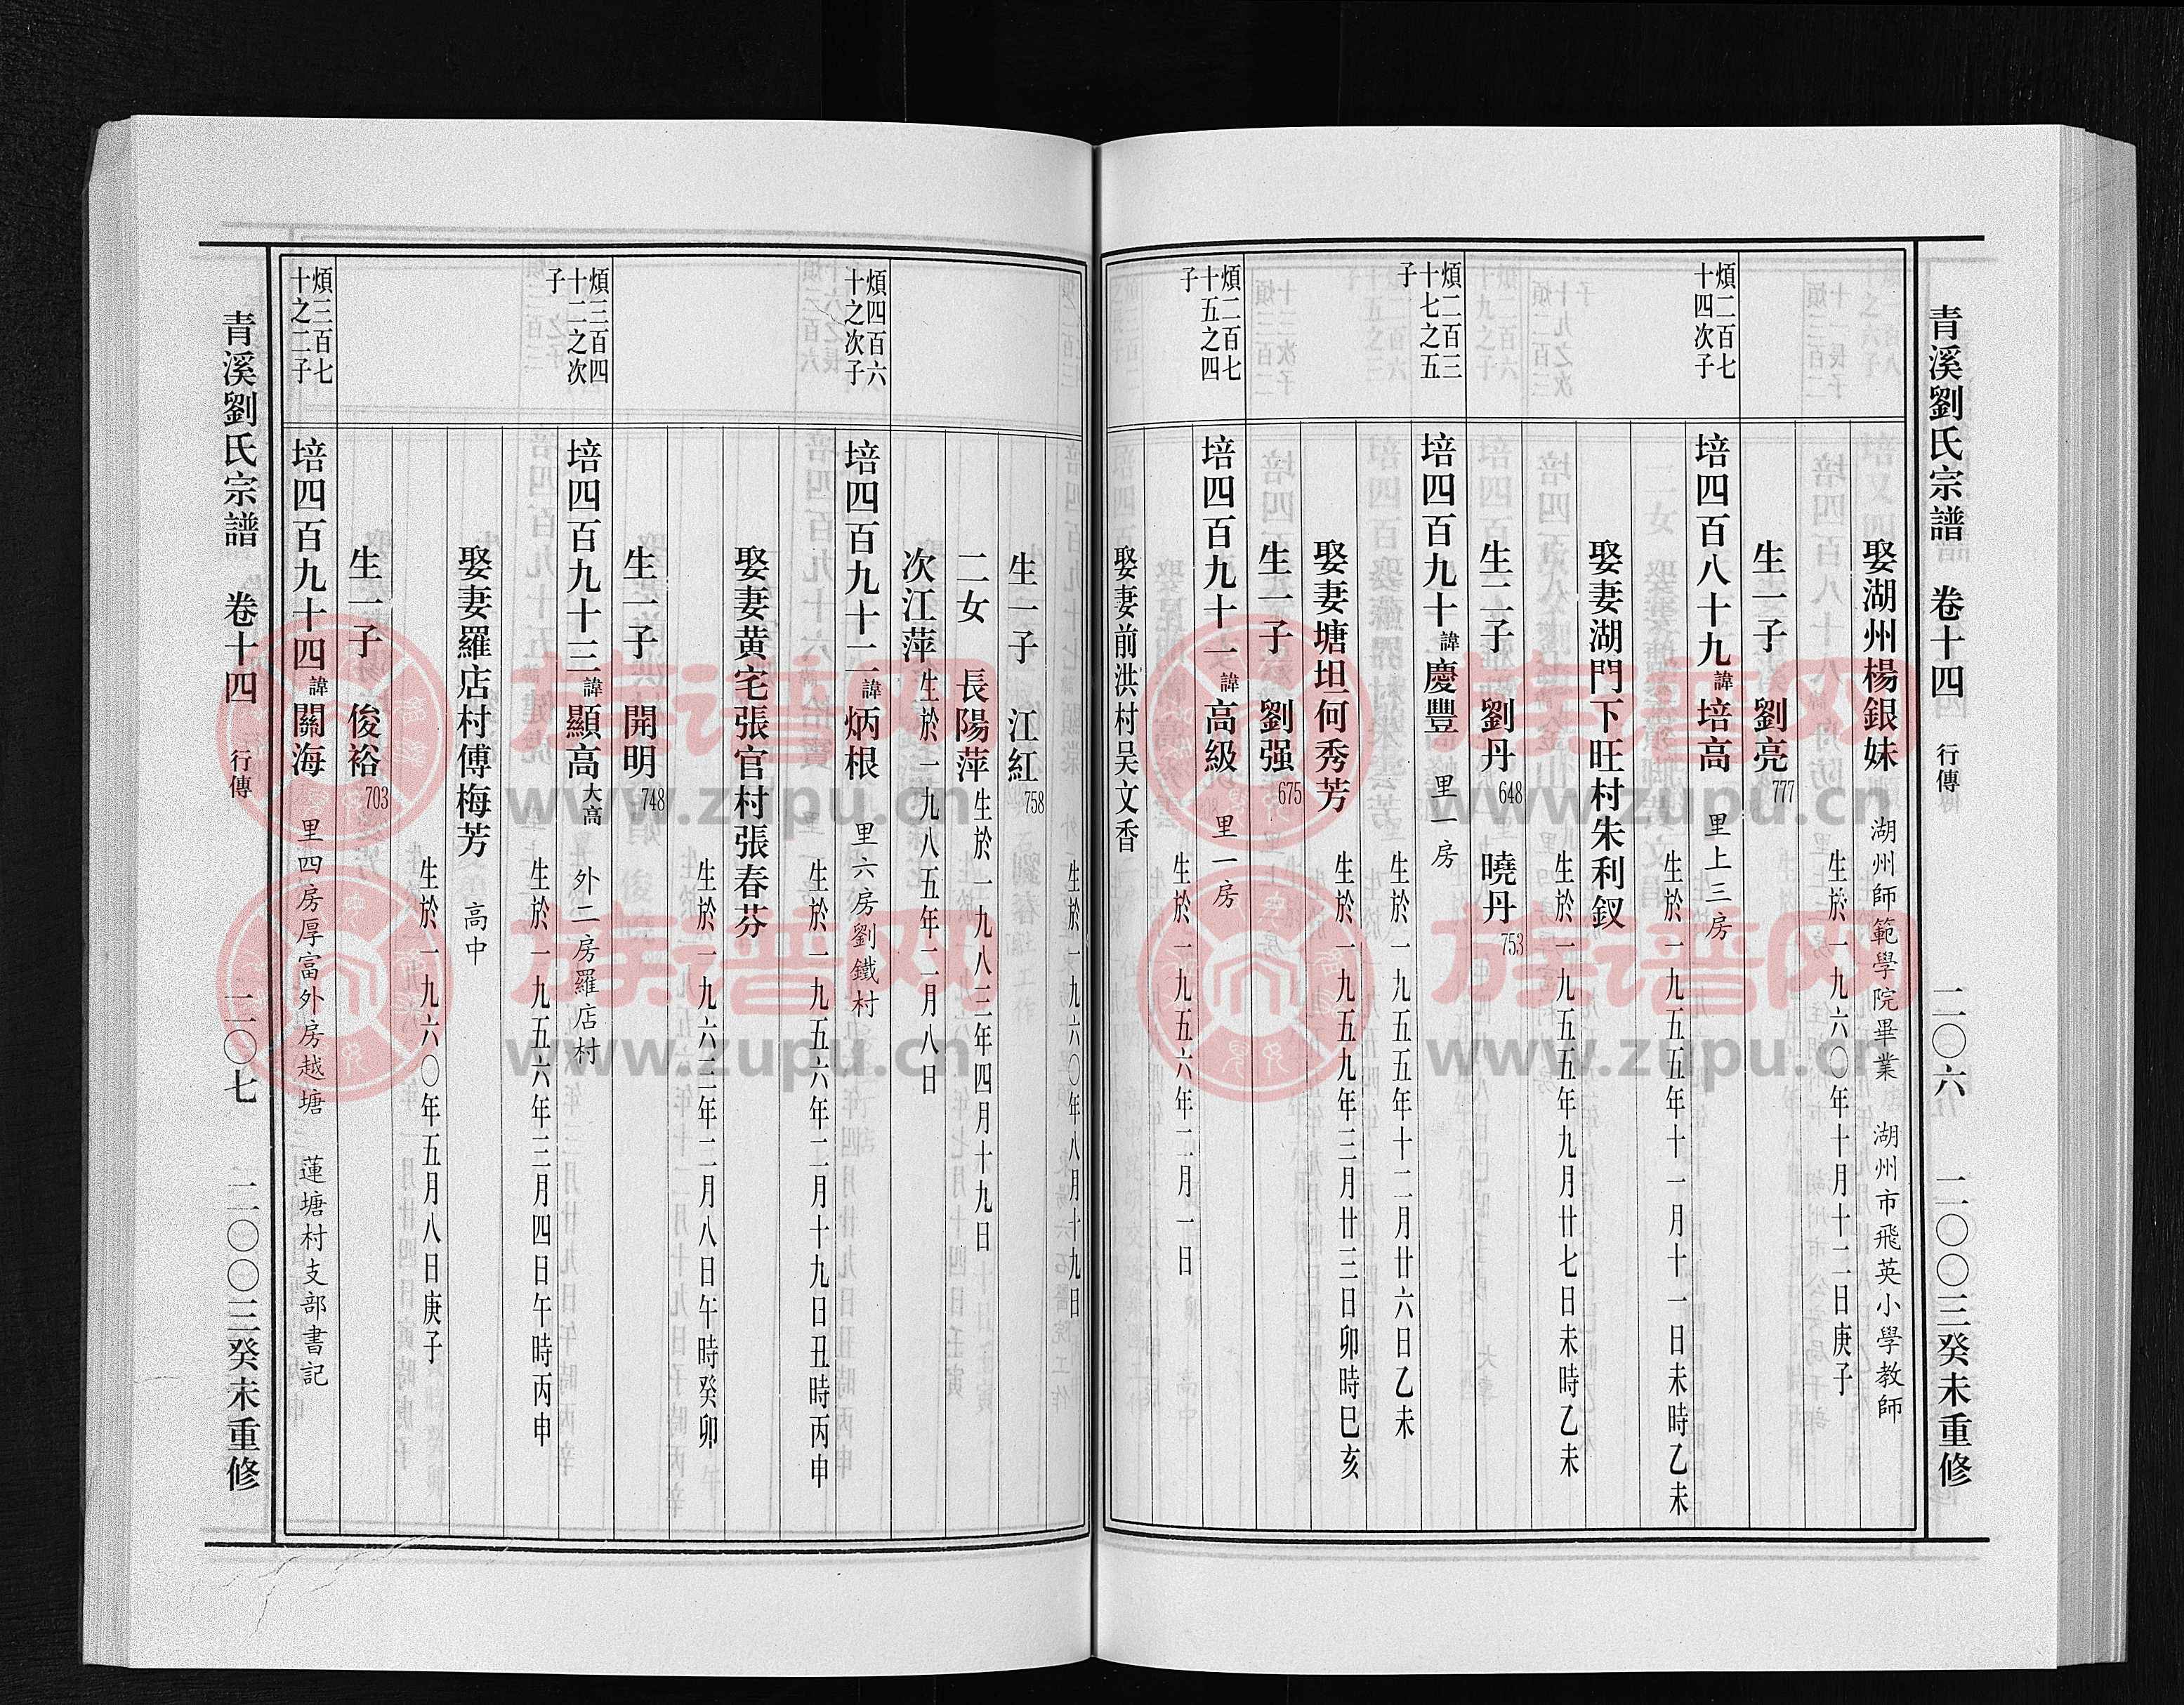 青溪劉氏宗譜 卷十四 行傳 二〇六 二〇〇三癸未重修
娶湖州楊銀妹 湖州師範學院畢業 湖州市飛英小學教師
生於一九六〇年十月十二日庚子
生一子 劉亮777
煩二百七十四次子
培四百八十九諱培高 里上三房
生於一九五五年十一月十一日未時乙未
娶妻湖門下旺村朱利釵
生於一九五五年九月廿七日未時乙未
生二子 劉丹648 曉丹753
煩二百三十七之五子
培四百九十諱慶豐 里一房
生於一九五五年十二月廿六日乙未
娶妻塘坦何秀芳
生於一九五九年三月廿三日卯時巳亥
生一子 劉强675
煩二百七十五之四子
培四百九十一諱高級 里一房
生於一九五六年二月一日
娶妻前洪村吴文香
生於一九六〇年八月十九日
生一子 江紅758
二女 長陽萍生於一九八三年四月十九日
次江萍生於一九八五年二月八日
煩四百六十之次子
培四百九十二諱炳根 里六房劉鐵村
生於一九五六年二月十九日丑時丙申
娶妻黄宅張官村張春芬
生於一九六三年二月八日午時癸卯
生一子 開明748
煩三百四十二之次子
培四百九十三諱顯高大高 外二房羅店村
生於一九五六年三月四日午時丙申
娶妻羅店村傅梅芳 高中
生於一九六〇年五月八日庚子
生一子 俊裕703
煩三百七十之二子
培四百九十四諱關海 里四房厚富外房越塘 蓮塘村支部書記
青溪劉氏宗譜 卷十四 行傳 二〇七 二〇〇三癸未重修
族谱网
www.zupu.cn
族谱网
www.zupu.cn
族谱网
www.zupu.cn
族谱网
www.zupu.cn